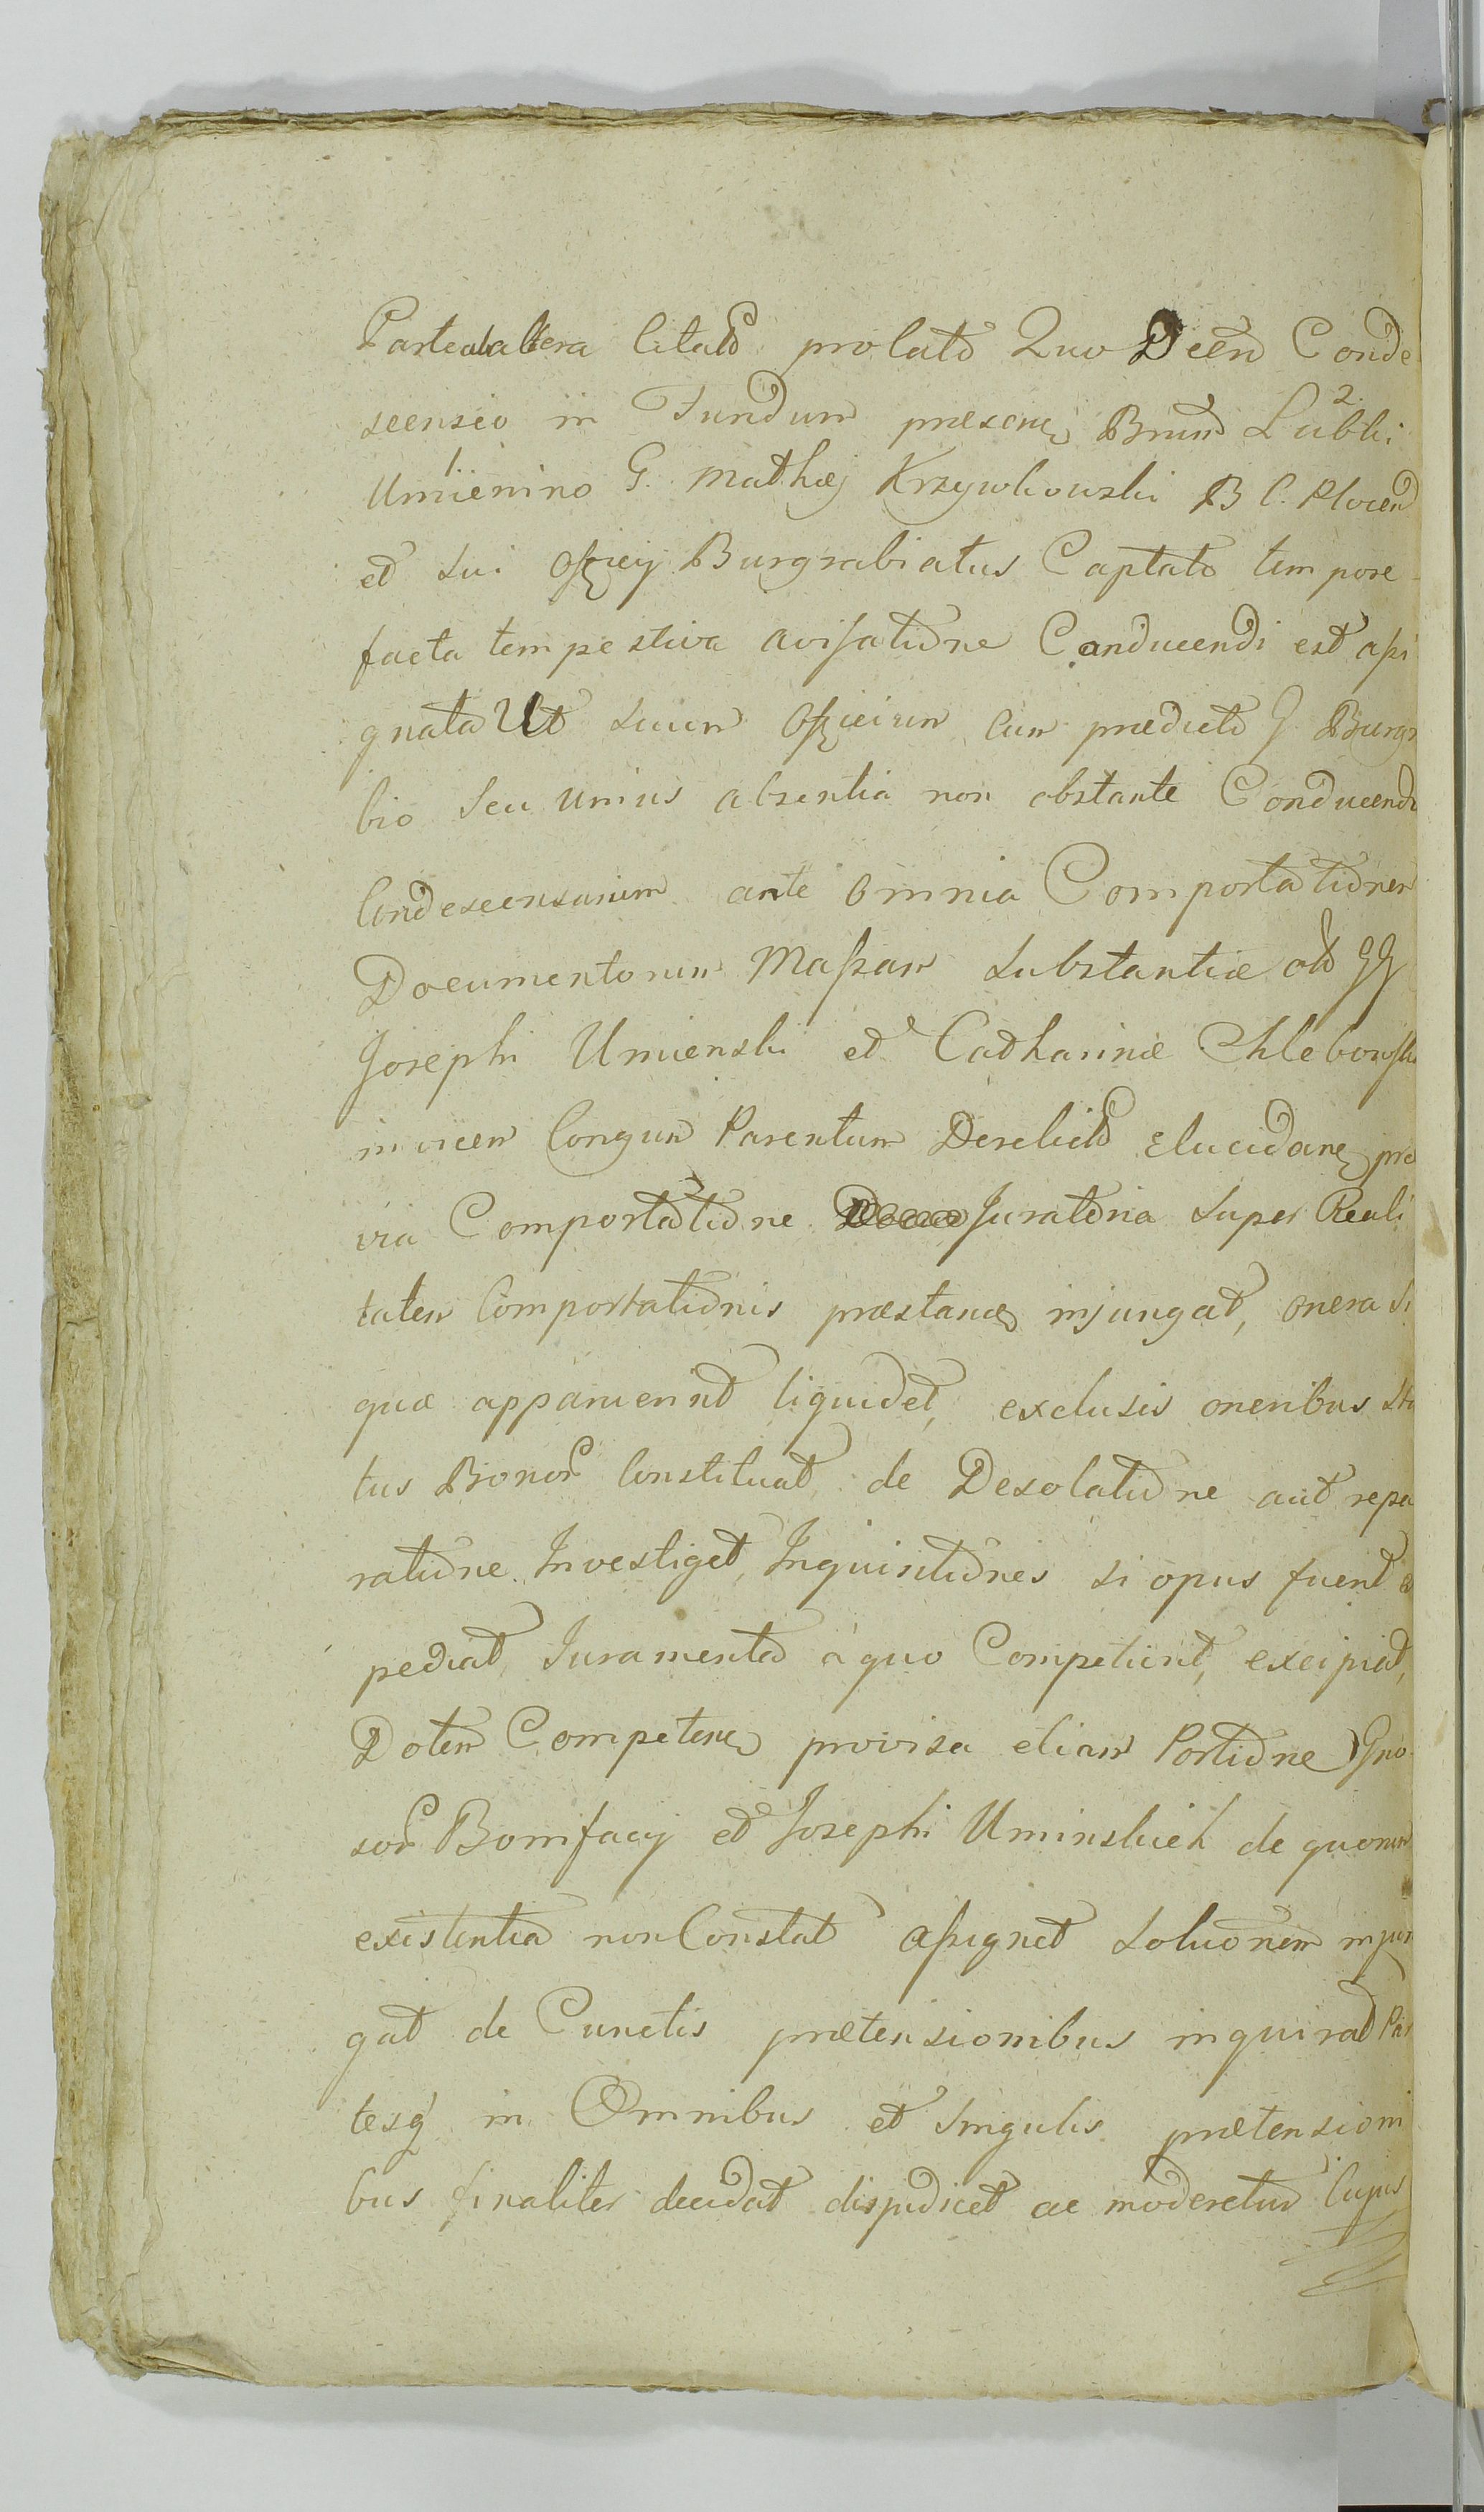 Parte ab altera Citato prolato Quo Decto Conde
scensio in Fundum præsen Bnum Lubki 2.
1. Umienino G. Mathæj Krzywkowski B C. Plocen
et sui Officij Burgrabiatus Captato tempore
facta tempestiva avisatione Conducendi est assi
gnata Ut suum Officium cum prædicto G. Burgr
bio seu unius absentia non obstante Conducendo
Condescensum ante omnia Comportationem
Documentorum Massam substantiæ olo GG
Josephi Umienski et Catharinæ Chlebowsk
invicem Congum Parentum Derelict Elucidan præ
via Comportatione Juratoria super Reali
tatem Comportationis præstan injungat, onera si
quæ apparuerint liquidet, exclusis oneribus sta
tus Bonor Constituat, de Desolatione aut repa
ratione Investiget, Inquisitiones si opus fuerit ex
pediat, Juramenta à quo Competierit, excipiat,
Dotem Competen provisa etiam Portione Gno
sor Bonifacij et Josephi Uminskich de quorum
existentia non Constat assignet Solucionem injun
gat de Cunctis prætensionibus inquirat Par
tesq in Omnibus et singulis prætensioni
bus finaliter decidat dijudicet ac moderetur Cujus